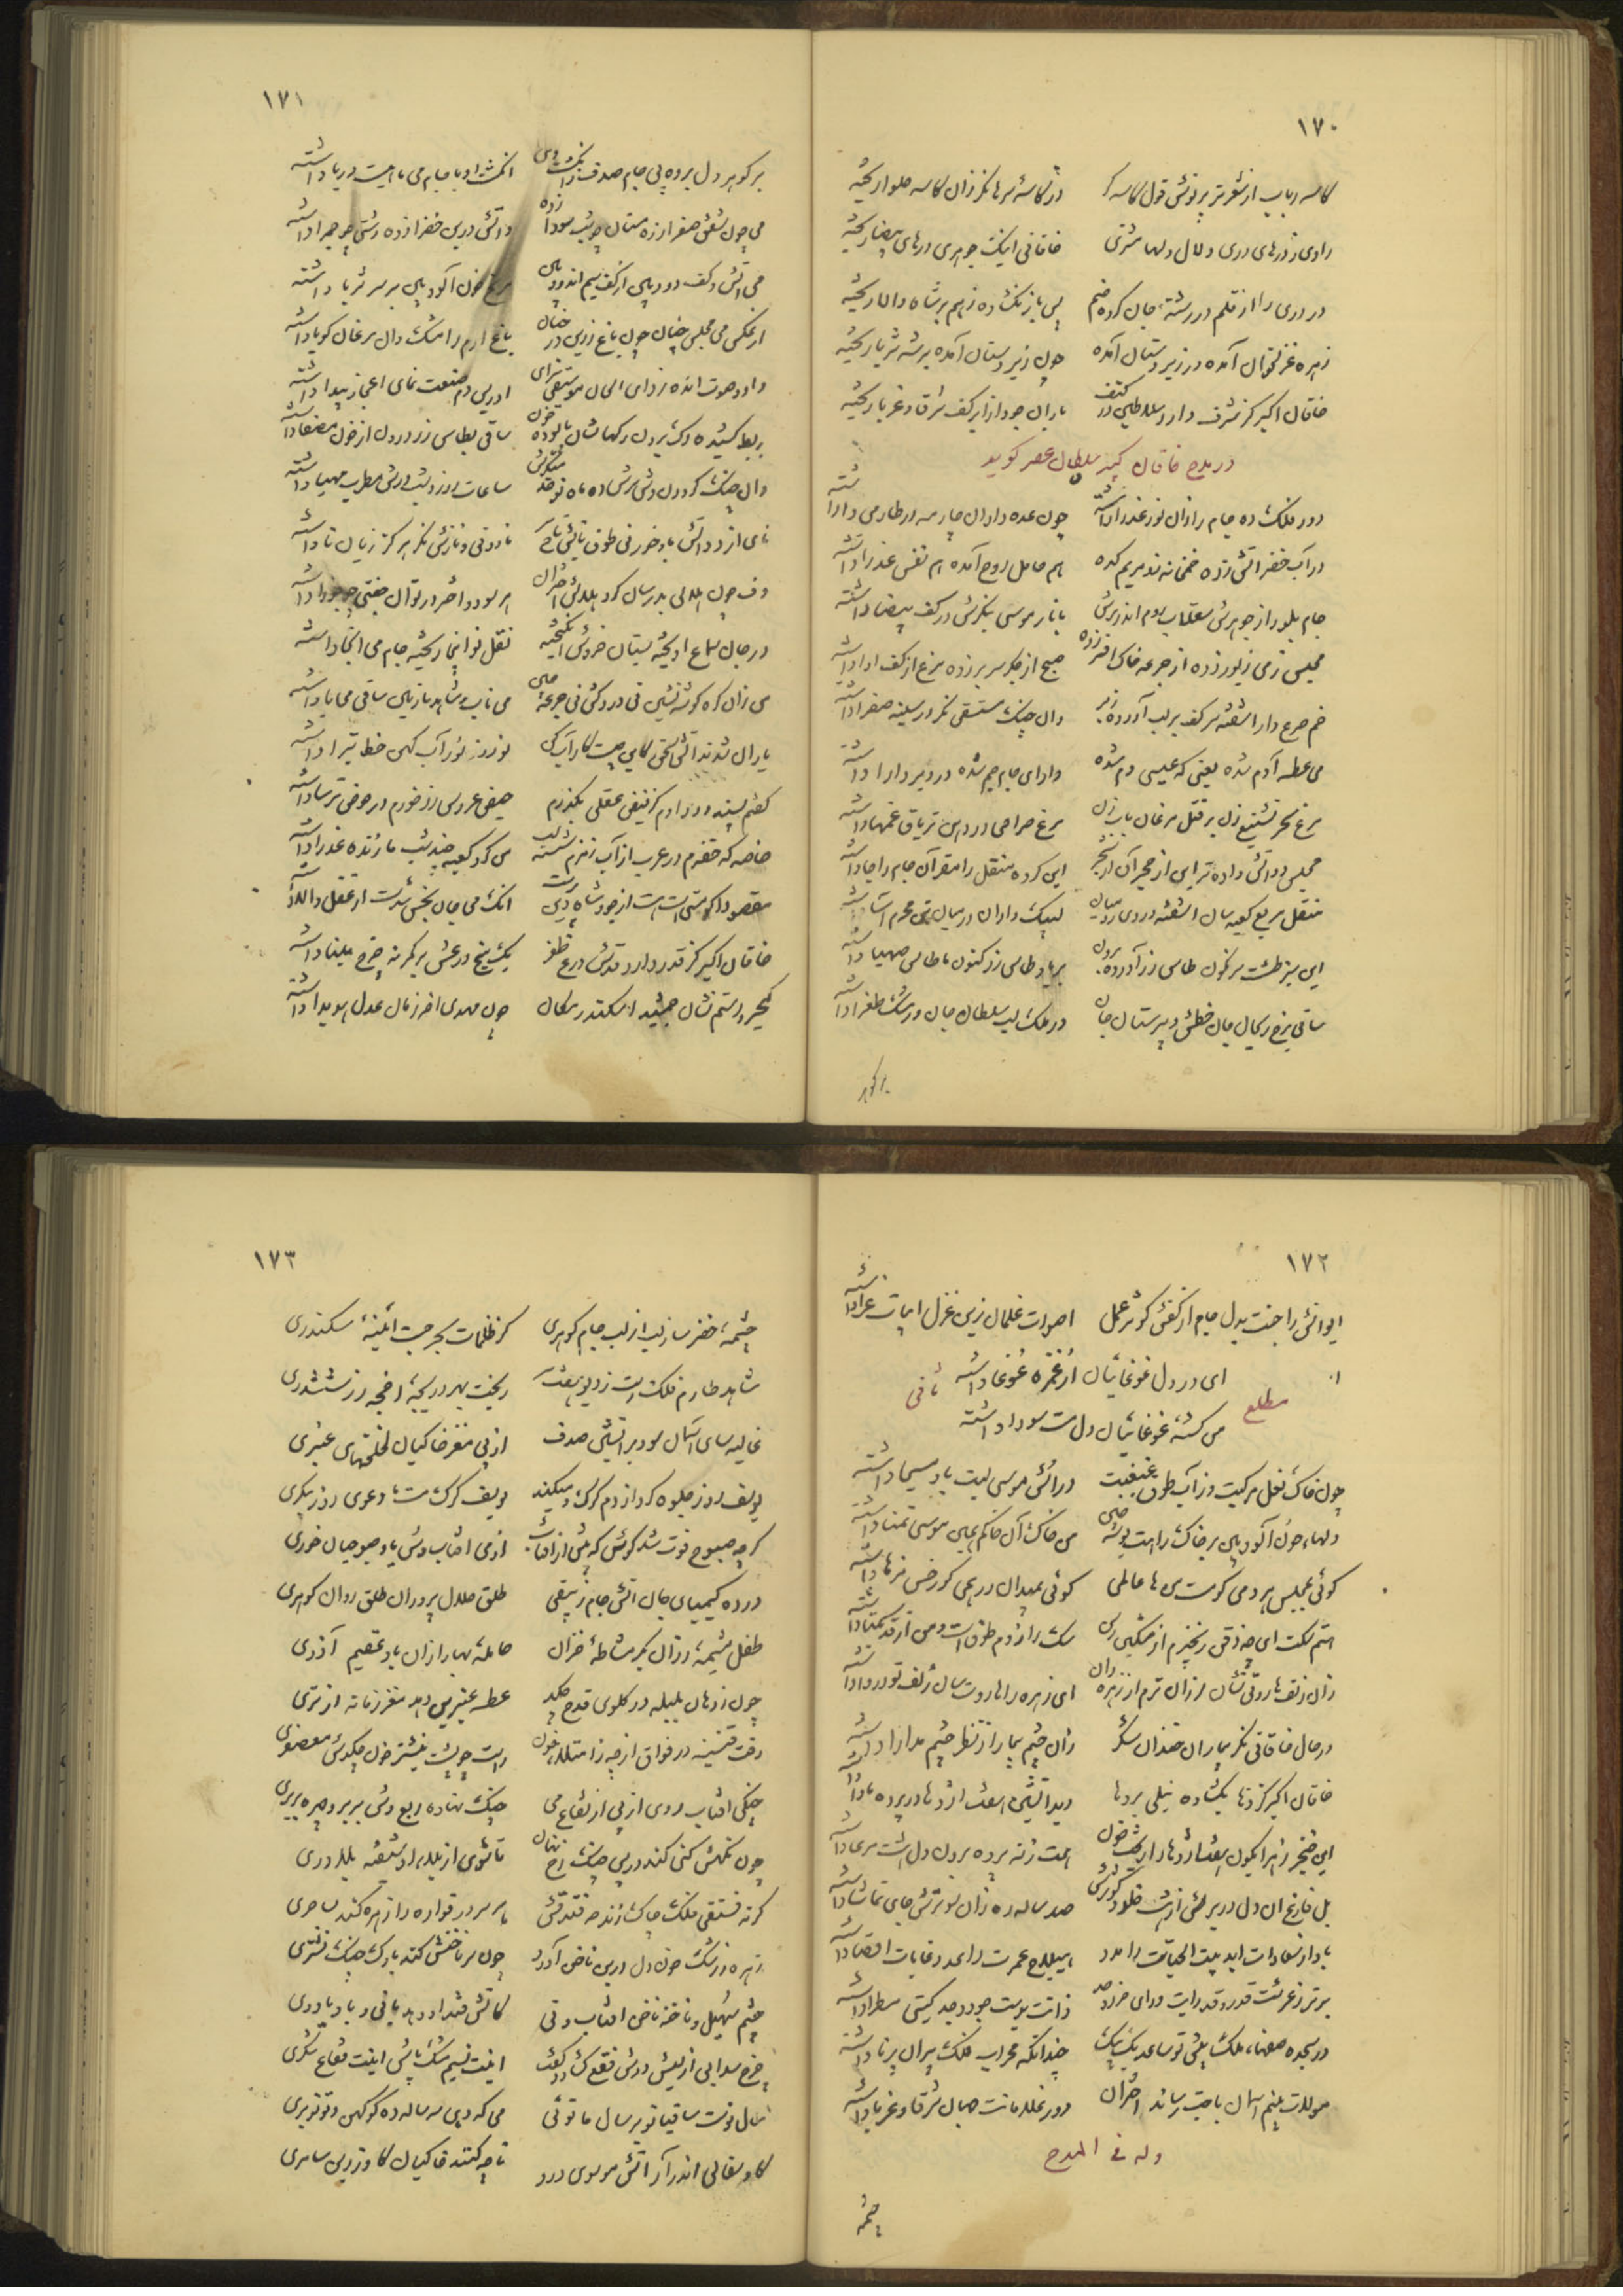 ۱۷۰
کاسه رباب از شعر تر بر نوش قول کاسه گر در کاسهٔ سرها نگر زان کاسه حلوا ریخته
راوی ز درهای دری دلال و دلها مشتری خاقانی اینک جوهری درهای بیضا ریخته
در دری را از قلم در رشتهٔ جان کرده ضم پس باز بگشاده ز هم بر شاه والا ریخته
زهره غزلخوان آمده در زیر و دستان آمده چون زیردستان آمده بر شه ثریا ریخته
خاقان اکبر کز شرف دارد سلاطین در کنف باران جود از ابر کف شرقا و غربا ریخته
در مدح خاقان کبیر سلطان عصر گوید
دور فلک ده جام را از نور عذرا داشته چون عده داران چار مه در طارمی وا داشته
در آب خضر آتش زده خمخانه زو مریم کده هم حامل روح آمده هم نفس عذرا داشته
جام بلور از جوهرش سقلاب روم اندر برش با نار موسی بنگرش در کف بیضا داشته
مجلس ز می زیور زده از جرعه خاک افسر زده صبح از جگر سر بر زده مرغ از کف آوا داشته
خم صرع دار آشفته سر کف بر لب آورده ز بر وان چنگ مستسقی نگر در سینه صفرا داشته
می عطسه آدم شده یعنی که عیسی دم شده دارای جام جم شده در دیر دارا داشته
مرغ سحر تشنیع زن بر قتل مرغان بابزن مرغ صراحی در دهن تریاق غمها داشته
مجلس دو آتش داده بر این از حجر آن از شجر این کرده منقل را مقر آن جام را جا داشته
منقل مربع کعبه سان آشفته در وی رومیان لبیک داران در میان تن محرم آسا داشته
این سبز طشت سرنگون طاس زر آورده برون بر یاد طاس زر کنون ما طاس صهبا داشته
ساقی برخ ریحان جان خطش دبیرستان جان در ملک لب سلطان جان ور مشک طغرا داشته
بر گوهر
۱۷۱
بر گوهر دل برده پی جام صدف وانگشت وی انگشت او با جام می ماهیست دریا داشته
می چون شفق صفرا زده مستان چو شب سودا زده و آتش درین خضرا زده رشتی چو حمرا داشته
می آتش و کف دود بین از کف سیم اندود بین مریخ خون آلود بین بر سر ثریا داشته
از عکس می مجلس چنان چون باغ زرین در خزان باغ ارم را مشک دان مرغان گویا داشته
داود صوت انده زدای الحان موسیقی سرای ادریس دم صنعت نمای اعجاز پیدا داشته
بربط کشیده رگ برون رگهاش پالوده ز خون ساقی بطاس زر درون از خون مصفا داشته
وان چنگ گردون وش سرش ده ماه نو خدمتگرش ساعات روز و شب درش مطرب مهیا داشته
نای از دو آتش باد خور نی طوق و تاجش نی کمر باد و نی و نازش نگر هر کز زبان تا داشته
دف چون هلال بدر سان گرد هلالش اختران هر سو دو اختر در قران جفتی چو جوزا داشته
در جان سماع آویخته بستان خروش انگیخته نقل نو اینجا ریخته جام می اینجا داشته
می زان گره گوشه نشین نی درد کش نی جرعه چین می ناب و شاهد نازنین ساقی محابا داشته
یاران شدند آتش سخن کاین چیست کار آب کن نوروز نو ز آب کهن خط تبرا داشته
گفتم پسندد داورم کز فیض عقلی بگذرم حیض عروس رز خورم در حوض ترسا داشته
خاصه که خضرم در عرب از آب زمزم شسته لب من گرد کعبه چند شب ما زنده عذرا داشته
مقصود اگر مستی است از جود شاه دین پرست انک می جان بخش شد از عقل والا داشته
خاقان اکبر کز قدر دارد قدش درع ظفر یک میخ درعش بر کمر نه چرخ میلنا داشته
کیخسرو رستم نشان جمشید اسکندر مکان چون مهدی آخر زمان عدل هویدا داشته
۱۷۲
ایوانش را جنت بدل جام از کفش کوثر عمل اصوات غلمان زین غزل ابیات غرا داشته
مطلع ثانی
ای در دل غوغائیان از غمزه غوغا داشته
من کشته غوغائیان دل مست سودا داشته
چون خاک نعل مرکبت وز آب طوق غبغبت در آتش موسی لبت باد مسیحا داشته
دلها خون آلوده بین بر خاک راهت بوسه چین من خاک آن خاکم همین بوسی تمنا داشته
گوئی بمجلس هر دمی گوست من با عالمی گوئی بمیدان در همی گو رخش من ها داشته
هستم سگت ای خوش ذقن زنجیرم از مشکین رسن سگ را ز دم طوق است و من از قد یکتا داشته
زان زلف هاروتی نشان لرزان ترم از زهره دان ای زهره را هاروت سان زلف تو دروا داشته
در حال خاقانی نگر بیماران خندان شکر زان چشم بیمار از نظر چشم مداوا داشته
خاقان اکبر کز دها بگشاده نیلی پردها دید آتشین هفت اژدها در پرده مأوا داشته
این خنجر زهر آبگون هفت اژدها را ریخت خون هست نه پرده برون دل هشت مرعا داشته
بل فارغ از ان دل در برش از هشت خلد و کوثرش صد ساله ره زان سو ترش جای تماشا داشته
باد از سعادات ابد بیت الحیاتت را مدد هیلاج عمرت را عدد غایات اقصا داشته
برتر ز عرشت قدر و قد رایت ورای خرد و حد ذاتت بدست جود و جد گیتی مطرا داشته
در سجده صفهاء ملک پیش تو ساعد یک بیک چندانکه محراب فلک پیران برنا داشته
مولات پنجم آسمان باجت رسانند اختران دور غلامانت جهان شرقا و غربا داشته
وله فی المدح
چشمه
۱۷۳
چشمه خضر ساز لب از لب جام گوهری کز ظلمات بحر جست آینهٔ سکندری
شاهد طارم فلک رست ز دیو هفت سر ریخت بهر دریچهٔ اخچه زر شش سری
غالیه سای آسمان سود بر آتشین صدف از پی مغز خاکیان لخلخهای عنبری
یوسف روز جلوه کرد از دم گرگ و میکند یوسف گرگ مست ما دعوی روز پیکری
گرچه صبوح فوت شد کوش که پیش از آفتاب از می آفتاب وش یاد صبوحیان خوری
درده کیمیای جان آتش جام زیبقی طلق حلال پرور آن طلق روان گوهری
طفل مشیمهٔ رزان بکر مشاطهٔ خزان حاملهٔ بهار ازان باد عقیم آذری
چون ز دهان بلبله در گلوی قدح چکد عطسه عنبرین دهد مغز زمانه از تری
رفت قنینه در فواق از چه ز امتلاء خون راست چو پشت نیشتر خون چکدش معصفری
چنگی آفتاب روی از پی ارتفاع می چنگ نهاده ربع وش بر بر و چهره بربری
چون نگهش کنی کند در پس چنگ رخ نهان تا شوی از بلا برا شیفته بلاوری
کرته فستقی فلک چاک زند چو فندقش با سر و در قواره را زهره کند بساحری
زهره ز رشک خون دل در بن ناخن آورد چون سر ناخنش کند با رگ چنگ نشتری
چشم سهیل و ناخنه ناخن آفتاب و نی کآتش و قند او دهد با نی و باد یاوری
چرخ سدابی از لبش دوش فقع گشاد و گفت اینت نسیم مشک پاش اینت فقاع شکری
سال نوست ساقیا نوبر سال ما توئی می که دهی سه ساله ده کو کهن و تو نوبری
گاو سفالی اندر آر آتش موسوی درو تا چه کنند خاکیان گاو زرین سامری